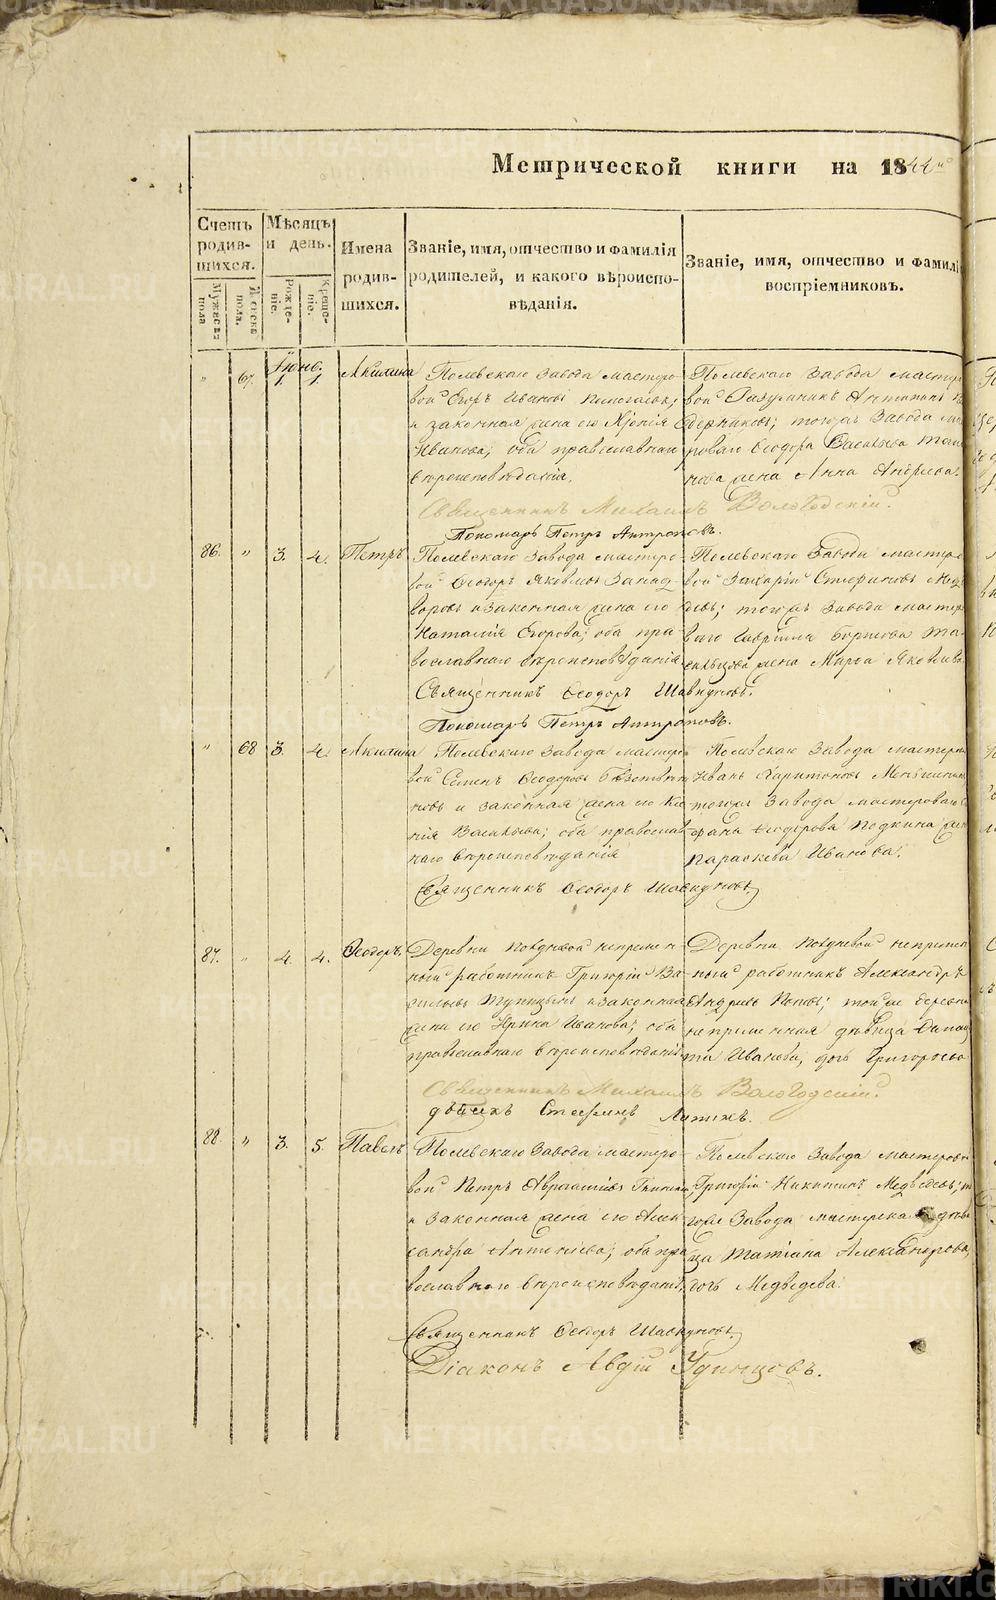 Метрической книги на 1844й
Счетъ родив-шихся.
Мужеска пола
Женска пола.
Мѣсяцъ и день.
Рожде-ніе.
Креще-ніе.
Имена родив-шихся.
Званіе, имя, отчество и фамилія родителей, и какого вѣроиспо-вѣданія.
Званіе, имя, отчество и фамилі
воспріемниковъ.
Іюнь.
" 67. 1 1 Акилина
Полевскаго завода мастеро-
вой Егоръ Ивановъ
и законная жена его Ксенія
Иванова; оба православнаго
вѣроисповѣданія.
Полевскаго завода мастер
вой Разумникъ Антипинъ
дерниковъ; тогожъ завода
роваго Ѳеодора Васильева
нова жена Анна Андреева.
Священникъ Михаилъ Вологодскій.
Пономарь Петръ Антроповъ.
86. " 3. 4. Петръ
Полевскаго завода мастеро-
вой Ѳеодоръ Яковлевъ Запад
воровъ и законная жена его
Наталія Егорова; оба пра
вославнаго вѣроисповѣданія
Полевскаго завода мастеро
вой Захарій Стефановъ Мед
девъ; тогожъ завода мастеро
ваго Гавріила Борисова
жена Марѳа Яковлева
Священникъ Ѳеодоръ Шавкуновъ.
Пономарь Петръ Антроповъ.
" 68 3. 4. Акилина
Полевскаго завода мастеро
вой Семенъ Ѳеодоровъ
новъ и законная жена его Ксе
нія Васильева; оба православ
наго вѣроисповѣданія
Полевскаго завода мастеров
Иванъ Харитоновъ Меньшенин
тогожъ завода мастероваго
фана Ѳеодорова Подкина жен
Параскева Иванова.
Священникъ Ѳеодоръ Шавкуновъ.
87. " 4. 4. Ѳеодоръ.
Деревни Полдневой непремен
ный работникъ Григорій Ва
сильевъ Тупицынъ и законная
жена его Ирина Иванова; оба
православнаго вѣроисповѣданія
Деревни Полдневой непремен
ный работникъ Александръ
Андреевъ Поповъ; тойже деревни
непременная дѣвица
та Иванова, дочь Григорьева
Священникъ Михаилъ Вологодскій.
Стефанъ
88. " 3. 5. Павелъ
Полевскаго завода мастеро-
вой Петръ Авраамовъ
и законная жена его Алек
сандра Антоніева; оба пра
вославнаго вѣроисповѣданія,
Полевскаго завода мастеровой
Григорій Никитинъ Медвѣдевъ; т
огоже завода мастерска дѣви
ца Татіана Александрова,
дочь Медведева.
Священникъ Ѳеодоръ Шавкуновъ.
Діаконъ Авдій Удинцовъ.